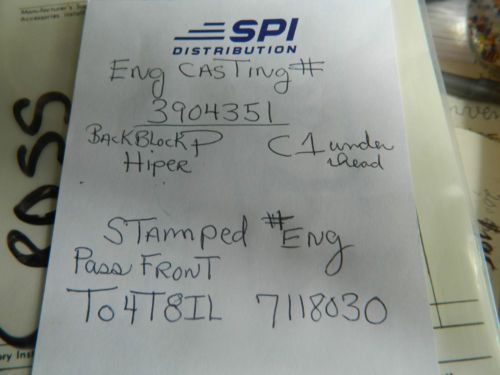 Manufacturer's Sug
Accessories Install
SPI
DISTRIBUTION
Eng CASTing #
3904351
BACK BLOCK
Hiper
C 1 under
head
STAmped #Eng
PASS FRONT
To4T8IL 7118030
ROSS
ory Ins